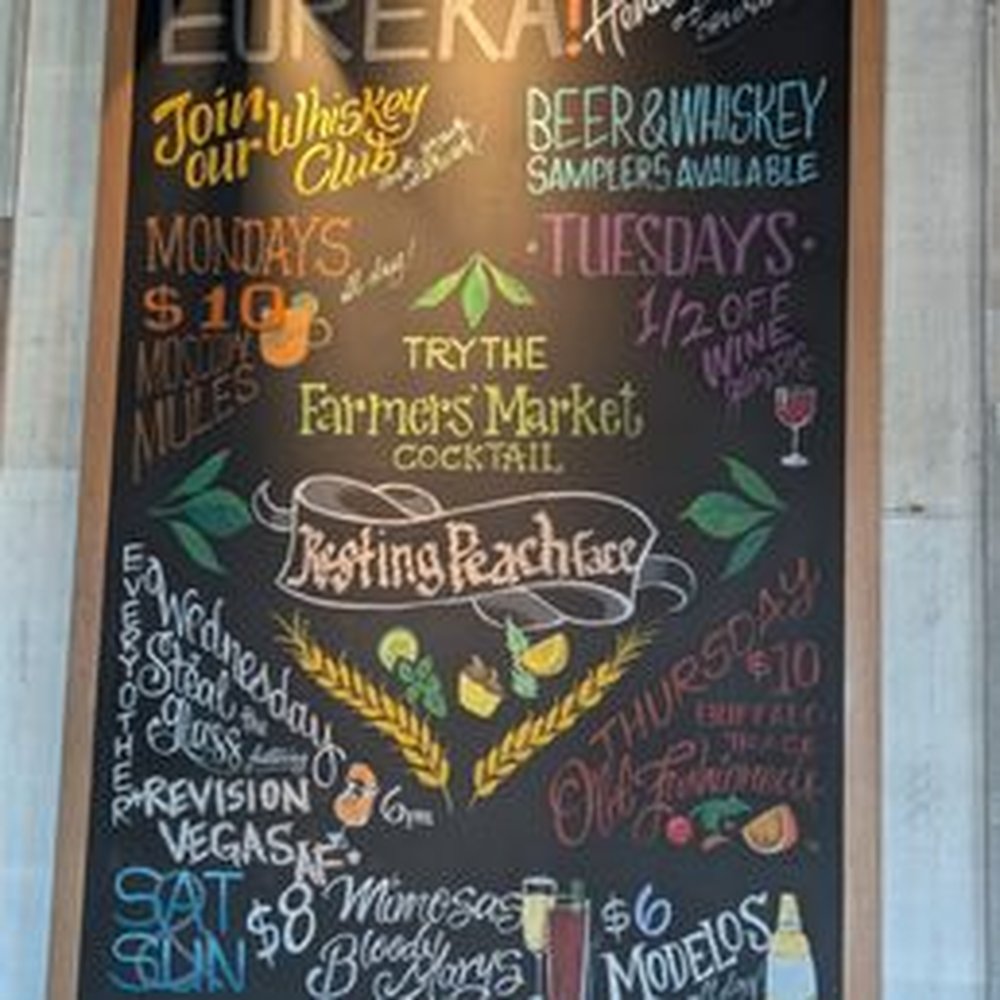 EUREKA!
Join our Whiskey Club
BEER & WHISKEY
SAMPLERS AVAILABLE
MONDAYS
all day!
$10
MULES
·TUESDAYS·
1/2 OFF
WINE
TRY THE
Farmers' Market
COCKTAIL
Resting Peach Face
EVERY OTHER
Wednesday
Steal the
glass
*REVISION
VEGAS AF*
6pm
THURSDAY
$10
BUFFALO
TRACE
Old Fashioneds
SAT
SUN
$8
Mimosas
Bloody
Marys
$6
MODELOS
all day